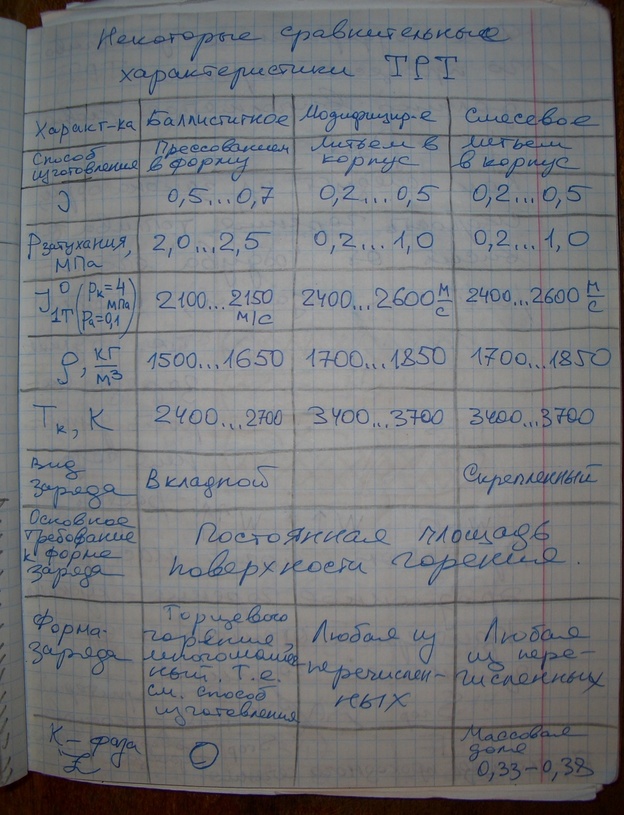 Некоторые сравнительные
характеристики ТРТ
Характ-ка Баллиститное Модифицир-е Смесевое
Способ изготовления
Прессованием в форму
Литьем в корпус
Литьем в корпус
0,5...0,7 0,2...0,5 0,2...0,5
Pзатухания, МПа 2,0...2,5 0,2...1,0 0,2...1,0
J⁰1T (Pк=4 МПа Pa=0,1) 2100...2150 м/с 2400...2600 м/с 2400...2600 м/с
ρ, кг/м³ 1500...1650 1700...1850 1700...1850
Tк, К 2400...2700 3400...3700 3400...3700
Вид заряда Вкладной Скрепленный
Основное
требование
к форме
заряда
Постоянная площадь
поверхности горения.
Форма-
заряда
Торцевого
горения,
ный. Т.е.
см. способ
изготовления
Любая из
перечислен-
ных
Любая
из пере-
численных
К-фаза
Z
0
Массовая
доля
0,33-0,38